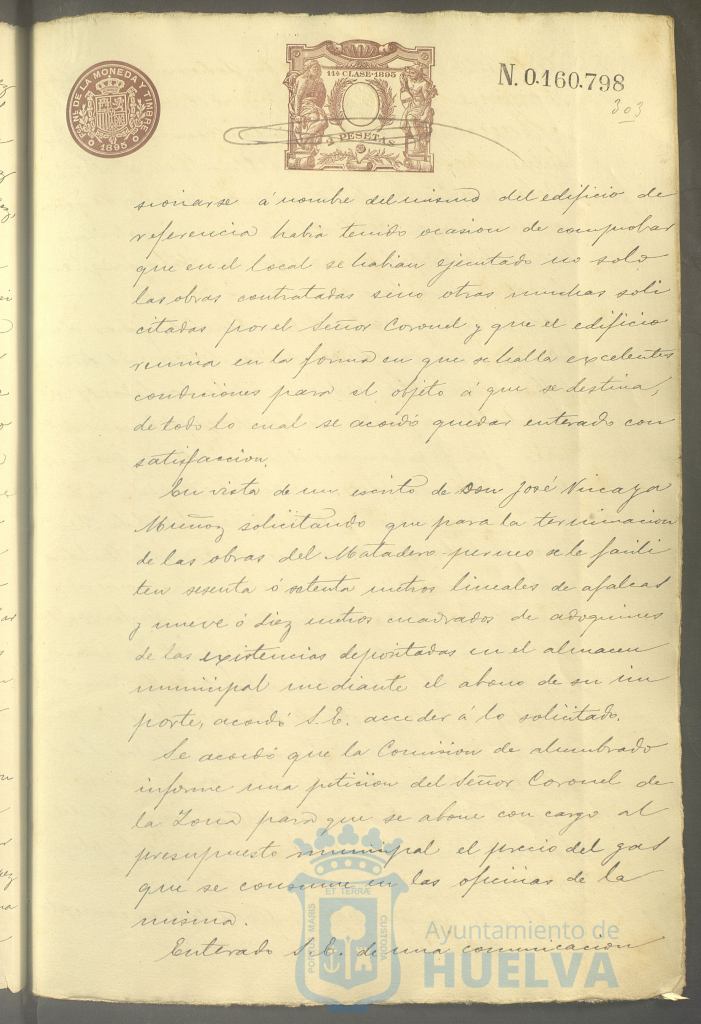 Fca. Nal. DE LA MONEDA Y TIMBRE
1895
11ª CLASE·1895
2 PESETAS
N.0.160.798
303
sionarse á nombre del mismo del edificio de
referencia habia tenido ocasion de comprobar
que en el local se habian ejecutado no solo
las obras contratadas sino otras muchas soli
citadas por el Señor Coronel y que el edificio
reunia en la forma en que se halla excelentes
condiciones para el objeto á que se destina,
de todo lo cual se acordó quedar enterado con
satisfaccion.
En vista de un escrito de Don José Vizcaya
Muñoz solicitando que para la terminacion
de las obras del Matadero se le facili
ten sesenta ó setenta metros lineales de
y nueve ó diez metros cuadrados de adoquines
de las existencias depositadas en el almacen
municipal mediante el abono de su im
porte, acordó S.E. acceder á lo solicitado.
Se acordó que la Comision de alumbrado
informe una peticion del Señor Coronel de
la Zona para que se abone con cargo al
presupuesto municipal el precio del gas
que se consume en las oficinas de la
misma.
Enterado S.E. de una comunicacion
PORTUS MARIS ET TERRÆ CUSTODIA
Ayuntamiento de
HUELVA